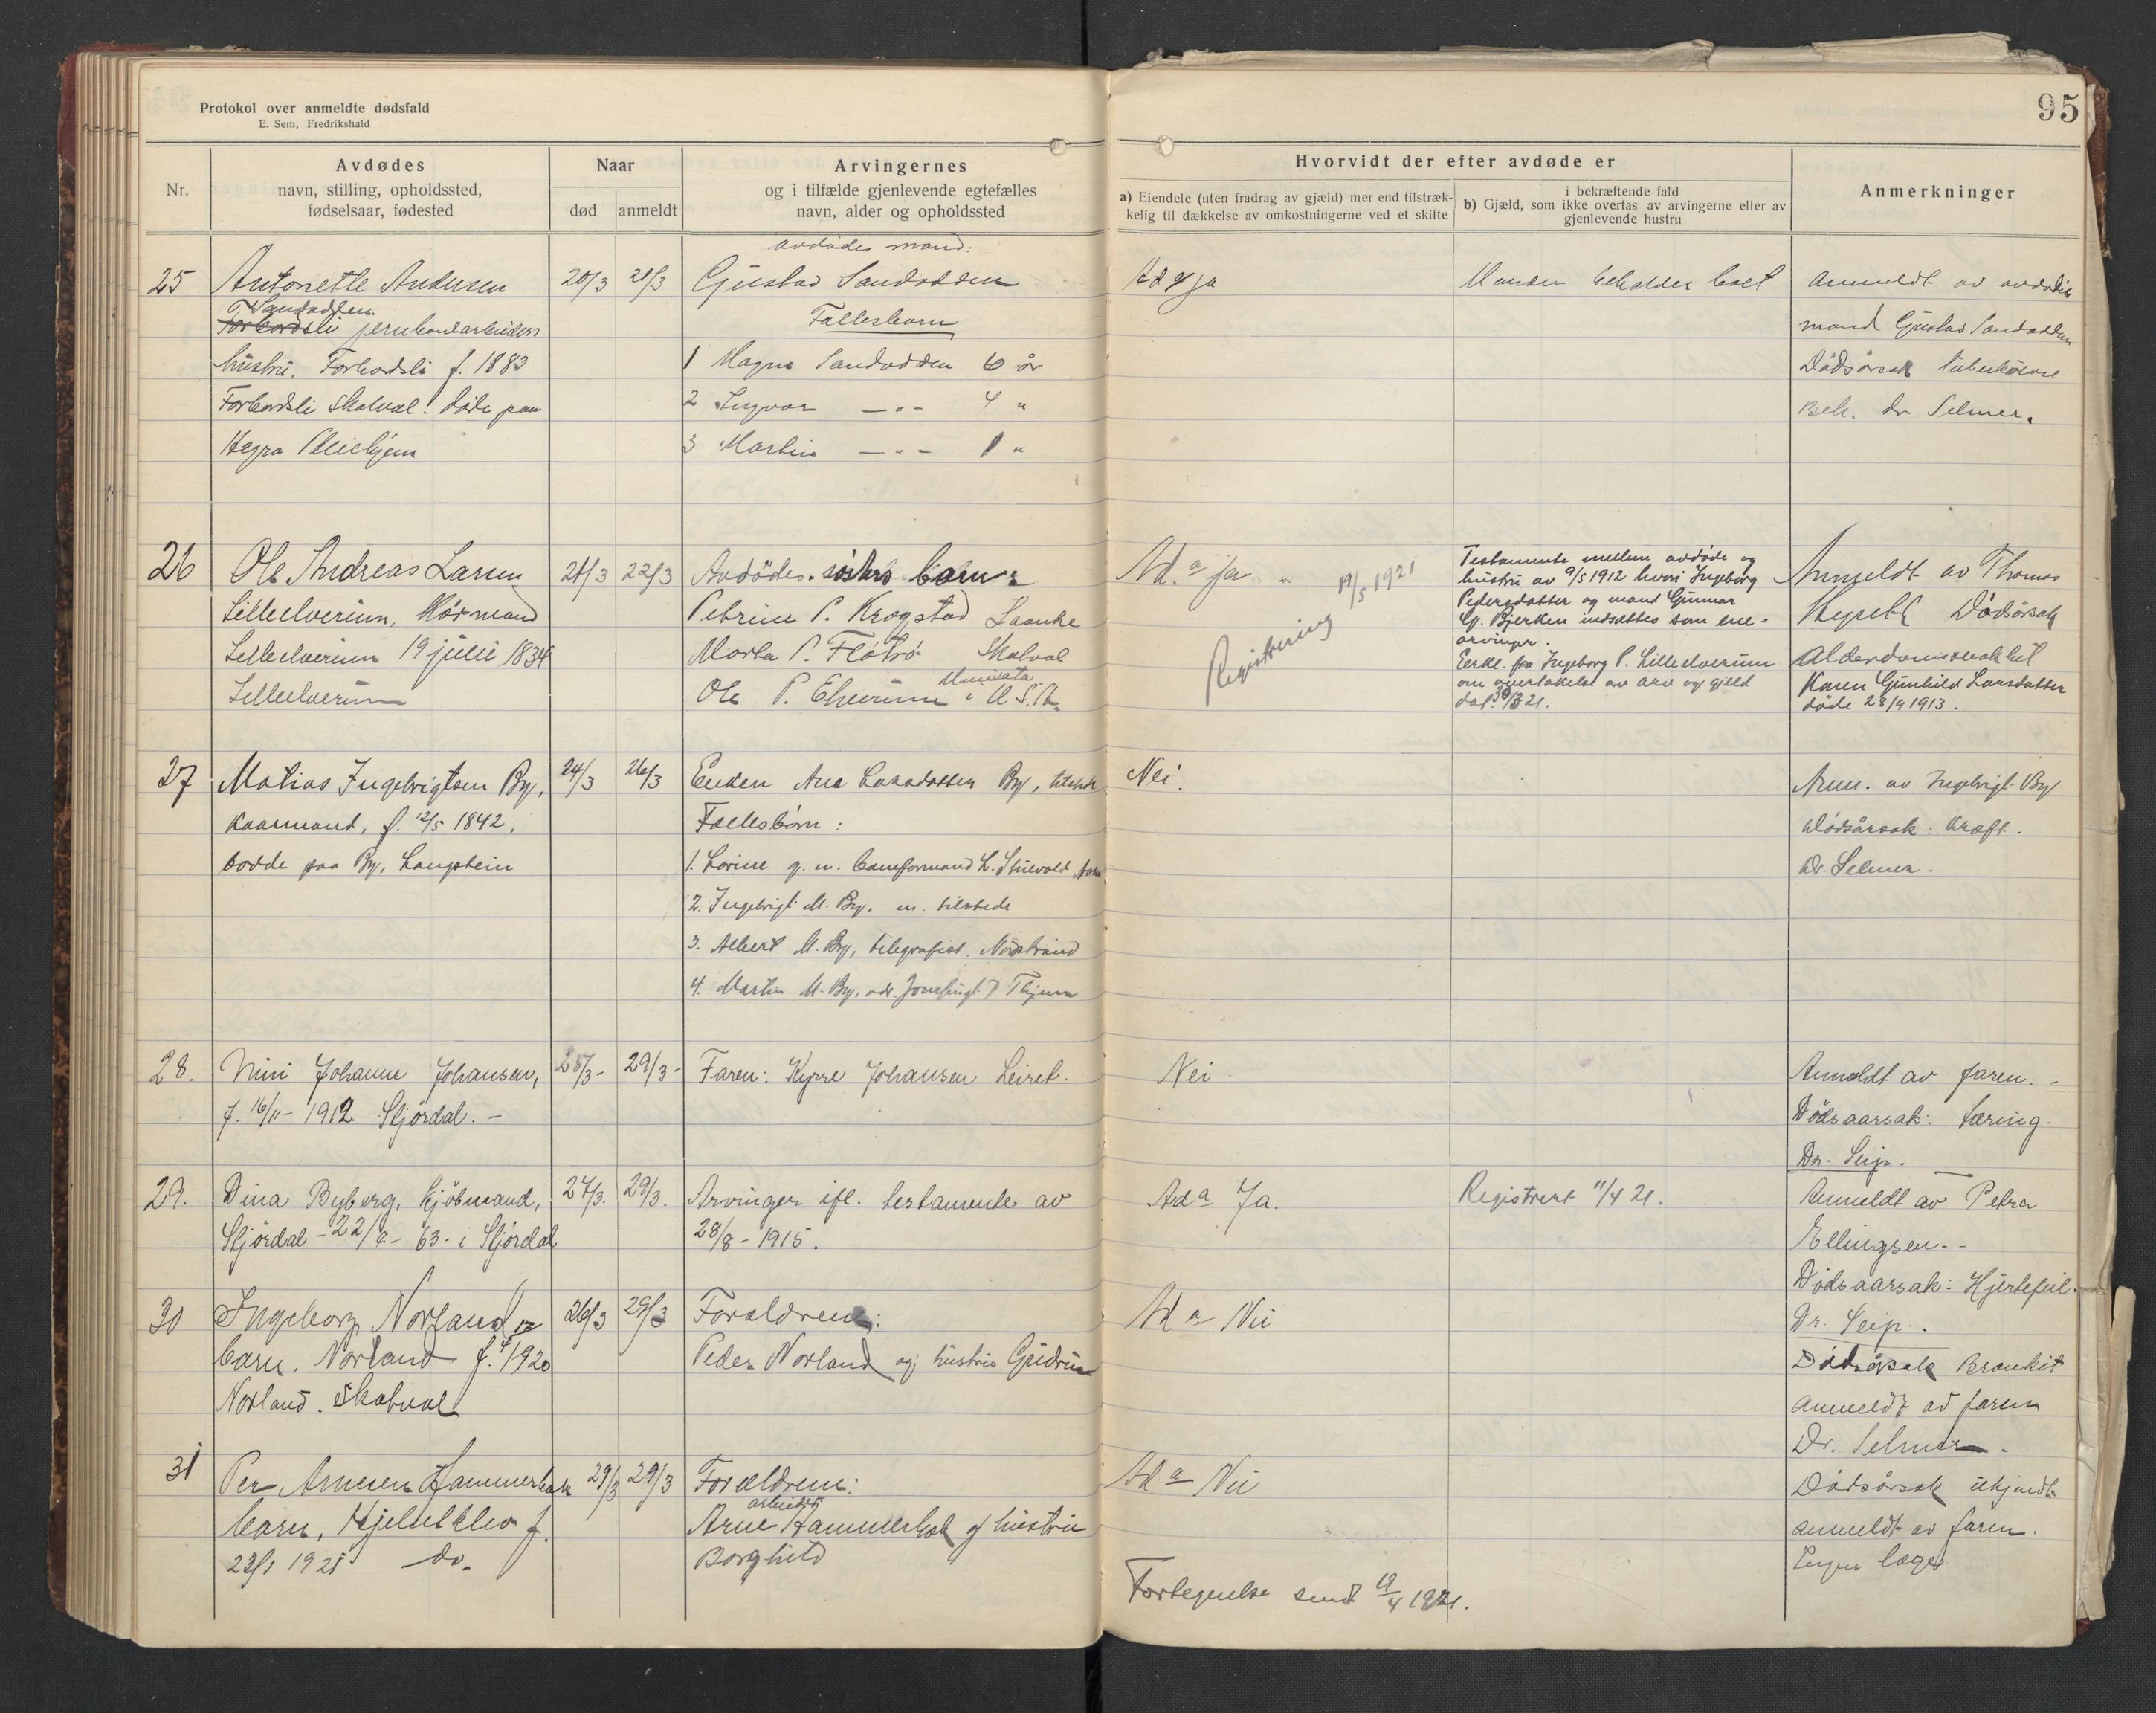 Protokol over anmeldte dødsfald
E. Sem, Fredrikshald
95
Nr.
Avdødes
navn, stilling, opholdssted,
fødselsaar, fødested
Naar
død
anmeldt
Arvingernes
og i tilfælde gjenlevende egtefælles
navn, alder og opholdssted
Hvorvidt der efter avdøde er
a) Eiendele (uten fradrag av gjæld) mer end tilstræk-
kelig til dækkelse av omkostningerne ved et skifte
i bekræftende fald
b) Gjæld, som ikke overtas av arvingerne eller av
gjenlevende hustru
Anmerkninger
25
Antonette Andersen
Sandodden
Forbordsli jernbanearbeiders
hustru. Forbordsli f. 1883
Forbordsli Skatval. døde paa
Hegra Pleiehjem
20/3
21/3
avdødes mand:
Gustav Sandodden
Fællesbarn
1 Magne Sandodden 6 år
2 Ingvar —"— 4 "
3 Martin —"— 1 "
Ad a ja
Manden beholder boet
Anmeldt av avdødes
mand Gustav Sandodden
Dødsårsak tuberkulose
Beh. dr Selmer.
26
Ole Andreas Larsen
Lilleelverum, Kårmand
Lilleelverum 19 juli 1834
Lilleelverum
21/3
22/3
Avdødes søsters barn:
Petrine P. Krogstad Laanke
Marta P. Fløtrø Skatval
Ole P. Elverum U.S.A.
Ad. a ja
Registrering 19/5 1921
Testamente mellem avdøde og
hustru av 9/5 1912 hvori Ingeborg
Pedersdatter og mand Gunnar
G. Bjerken indsættes som ene-
arvinger.
Erkl. fra Ingeborg P. Lilleelverum
om overtakelse av arv og gjeld
dat. 30/3 21.
Anmeldt av Thomas
Dødsårsak
Alderdomssvakhet
Karen Gunhild Larsdatter
døde 23/9 1913.
27
Matias Ingebrigtsen By,
Kaarmand, f. 12/5 1842,
bodde paa By, Langstein
24/3
26/3
Enken Ane Larsdatter By, tilstede
Fællesbørn:
1. Lorine g. m. baneformand L. Stuevold
2. Ingebrigt M. By, m. tilstede
3. Albert M. By, telegrafist, Nordstrand
4. Martin M. By, adr. Thjem
Nei.
Anm. av Ingebrigt By
Dødsårsak: Kræft.
Dr. Selmer.
28.
Nini Johanne Johansen,
f. 16/11 - 1912 Stjørdal. -
25/3 -
29/3 -
Faren: Kyrre Johansen Leiret.
Nei
Anmeldt av faren. -
Dødsaarsak: Tæring.
Dr. Seip.
29.
Dina Byberg, kjøbmand,
Stjørdal - 22/9 - 63 - i Stjørdal
27/3.
29/3.
Arvinger ifl. testamente av
28/8 - 1915.
Ad a Ja.
Registrert 11/4 21.
Anmeldt av Petra
Ellingsen. -
Dødsaarsak: Hjertefeil.
Dr. Seip.
30
Ingeborg Norland
barn, Norland f. 1920
Norland. Skatval
26/3
29/3
Forældrene:
Peder Norland og hustru Gudrun
Ad a Nei
Dødsårsak Bronkit
anmeldt av faren
Dr. Selmer.
31
Per Arnesen Hammerbak
barn, f.
23/1 1921 do.
29/3
29/3
Forældrene:
arbeider
Arne Hammerbak og hustru
Borghild
Ad a Nei
Dødsårsak ukjendt
anmeldt av faren.
Ingen læge
Fortegnelse sendt 19/4 1921.